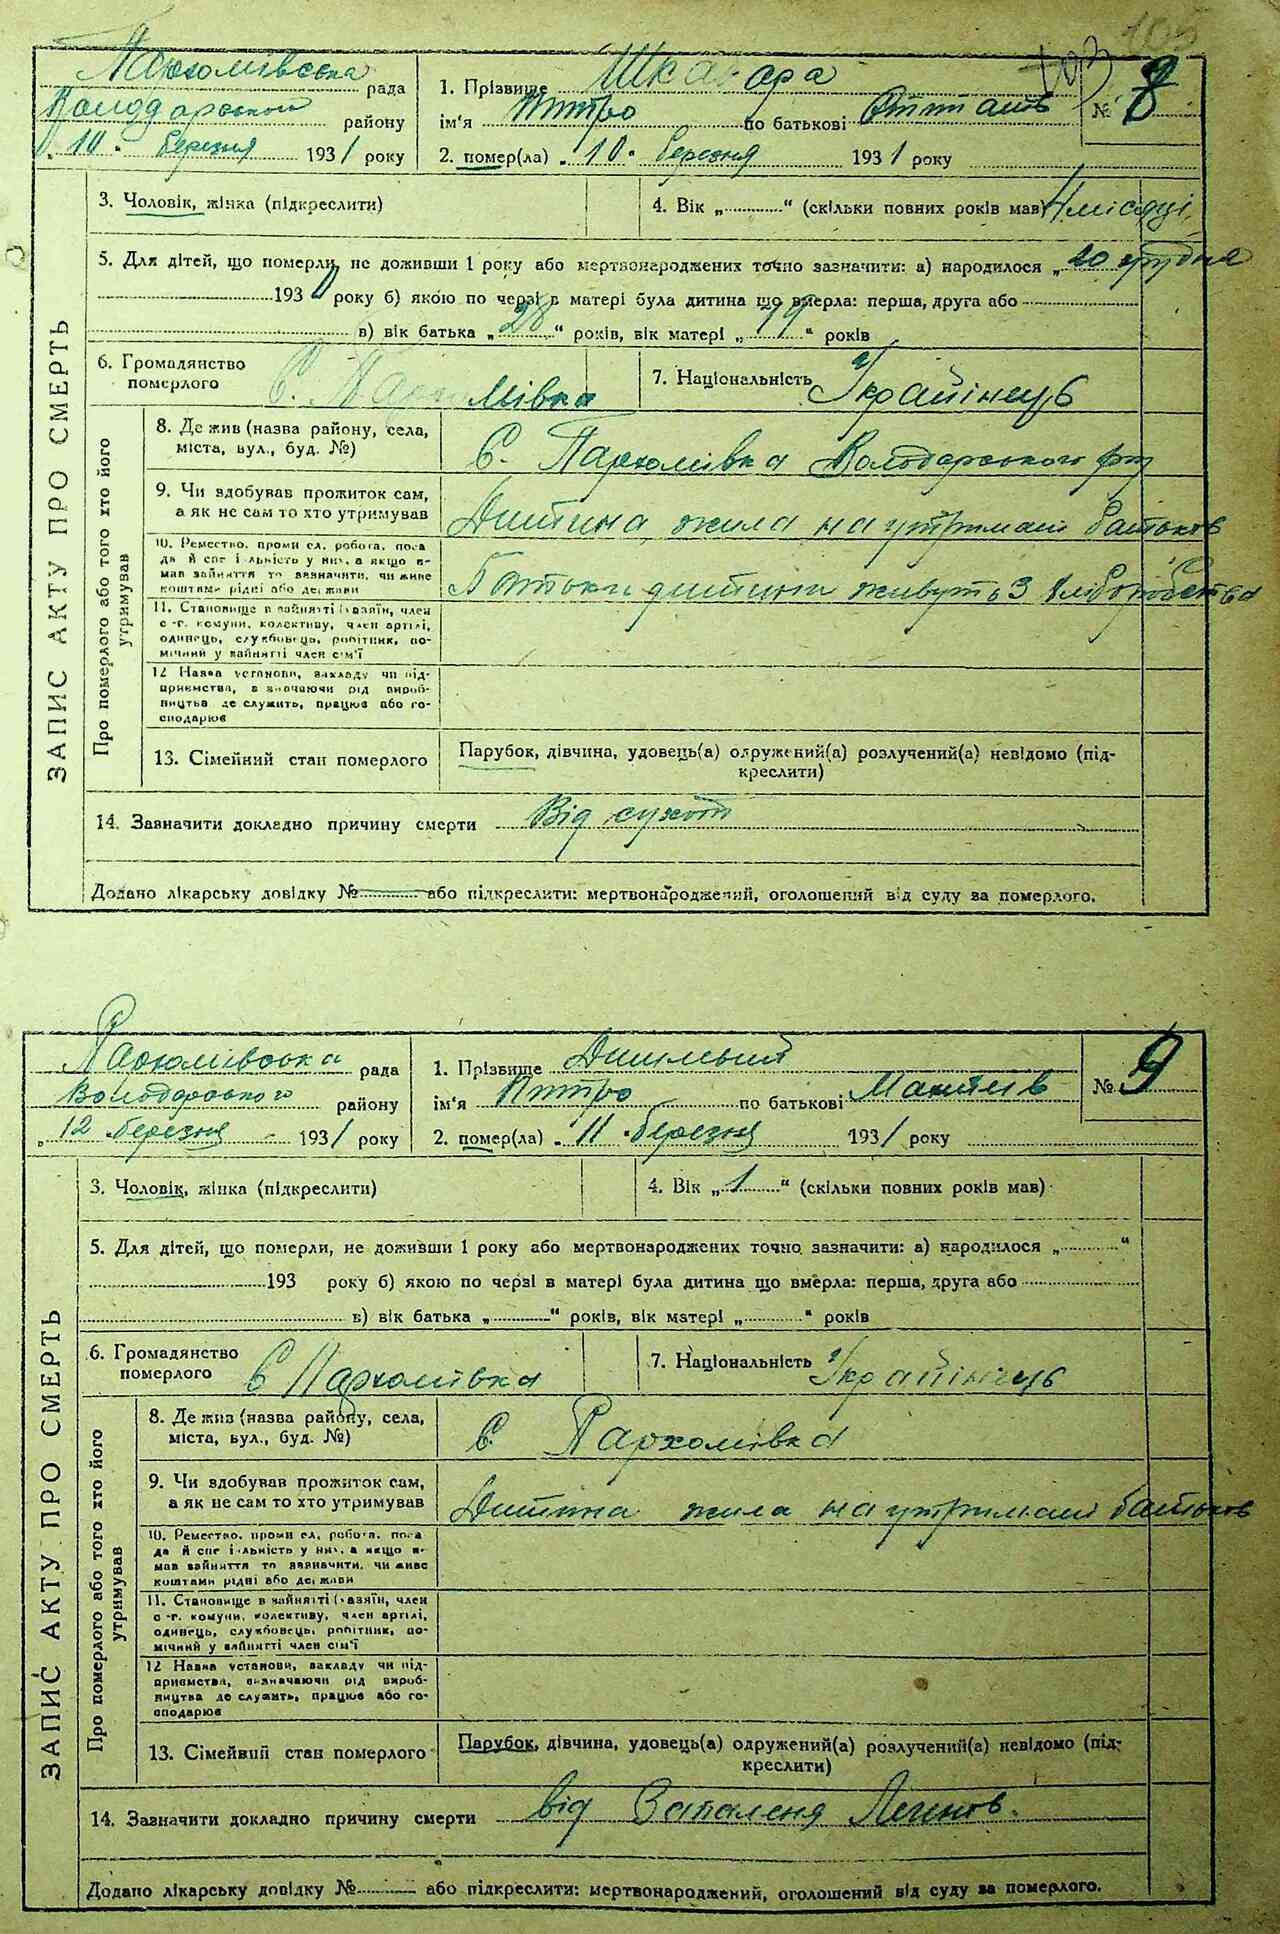 105
103
Пархомівська рада
Володарського району
„10“ березня 1931 року
1. Прізвище Шкавара
ім'я Петро по батькові Степанів
№ 8
2. помер(ла) „10“ березня 1931 року
ЗАПИС АКТУ ПРО СМЕРТЬ
3. Чоловік, жінка (підкреслити)
4. Вік „......“ (скільки повних років мав) 4 місяці
5. Для дітей, що померли, не доживши 1 року або мертвонароджених точно зазначити: а) народилося „20 грудня
1930 року б) якою по черзі в матері була дитина що вмерла: перша, друга або
в) вік батька „28“ років, вік матері „29“ років
6. Громадянство померлого С. Пархомівка
7. Національність Українець
Про померлого або того хто його утримував
8. Де жив (назва району, села, міста, вул., буд. №)
С. Пархомівка Володарського р-ну
9. Чи здобував прожиток сам, а як не сам то хто утримував
Дитина жила на утримані батьків
10. Ремество, промисел, робота, посада й спеціяльність у них, а якщо не мав зайняття то зазначити, чи живе коштами рідні або держави
Батьки дитини живуть з хліборобства
11. Становище в зайнятті (хазяїн, член с.-г. комуни, колективу, член артілі, одинець, службовець, робітник, помічний у зайнятті член сім'ї
12. Назва установи, закладу чи підприємства, зазначаючи рід виробництва де служить, працює або господарює
13. Сімейний стан померлого
Парубок, дівчина, удовець(а) одружений(а) розлучений(а) невідомо (підкреслити)
14. Зазначити докладно причину смерти Від сухот
Додано лікарську довідку №...... або підкреслити: мертвонароджений, оголошений від суду за померлого.
Пархомівська рада
Володарського району
„12“ березня 1931 року
1. Прізвище
ім'я Петро по батькові
№ 9
2. помер(ла) „11“ березня 1931 року
ЗАПИС АКТУ ПРО СМЕРТЬ
3. Чоловік, жінка (підкреслити)
4. Вік „1“ (скільки повних років мав)
5. Для дітей, що померли, не доживши 1 року або мертвонароджених точно зазначити: а) народилося „......“
193 року б) якою по черзі в матері була дитина що вмерла: перша, друга або
в) вік батька „......“ років, вік матері „......“ років
6. Громадянство померлого С Пархомівка
7. Національність Українець
Про померлого або того хто його утримував
8. Де жив (назва району, села, міста, вул., буд. №)
С. Пархомівка
9. Чи здобував прожиток сам, а як не сам то хто утримував
Дитина жила на утримані батьків
10. Ремество, промисел, робота, посада й спеціяльність у них, а якщо не мав зайняття то зазначити, чи живе коштами рідні або держави
11. Становище в зайнятті (хазяїн, член с.-г. комуни, колективу, член артілі, одинець, службовець, робітник, помічний у зайнятті член сім'ї
12. Назва установи, закладу чи підприємства, зазначаючи рід виробництва де служить, працює або господарює
13. Сімейний стан померлого
Парубок, дівчина, удовець(а) одружений(а) розлучений(а) невідомо (підкреслити)
14. Зазначити докладно причину смерти від Запаленя Легенов.
Додано лікарську довідку №...... або підкреслити: мертвонароджений, оголошений від суду за померлого.